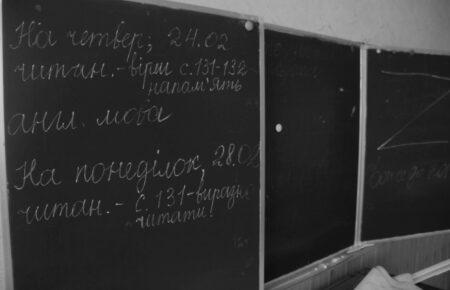 На четвер, 24.02
читан. - вірш с.131-132
напам'ять
англ. мова
На понеділок, 28.02
читан. - с.131-виразно
читати!